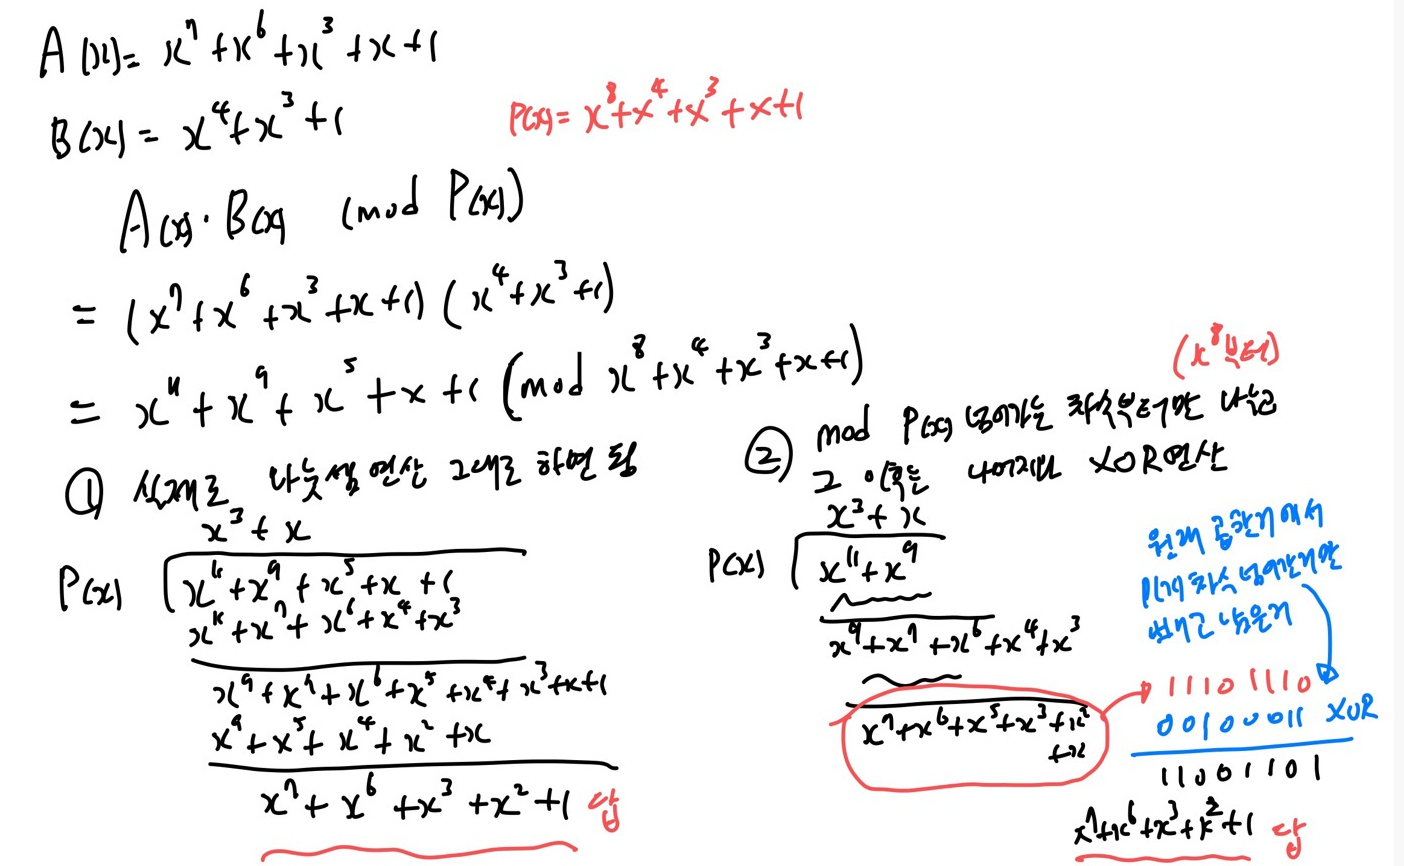 A(x)= x⁷+x⁶+x³+x+1
B(x)= x⁴+x³+1
P(x)= x⁸+x⁴+x³+x+1
A(x)·B(x) (mod P(x))
= (x⁷+x⁶+x³+x+1)(x⁴+x³+1)
= x¹¹+x⁹+x⁵+x+1 (mod x⁸+x⁴+x³+x+1)
① 실제로 나눗셈 연산 그대로 하면 됨
x³+x
P(x) x¹¹+x⁹+x⁵+x+1
x¹¹+x⁷+x⁶+x⁴+x³
x⁹+x⁷+x⁶+x⁵+x⁴+x³+x+1
x⁹+x⁵+x⁴+x²+x
x⁷+x⁶+x³+x²+1 답
(x⁸부터)
② mod P(x) 넘어가는 차수부터만 나누고
그 이후는 나머지와 XOR연산
x³+x
P(x) x¹¹+x⁹
x⁹+x⁷+x⁶+x⁴+x³
x⁷+x⁶+x⁵+x³+x²
+x
원래 곱한거에서
P(x) 차수 넘어간거만
빼고 남은거
11101110
00100011 XOR
11001101
x⁷+x⁶+x³+x²+1 답